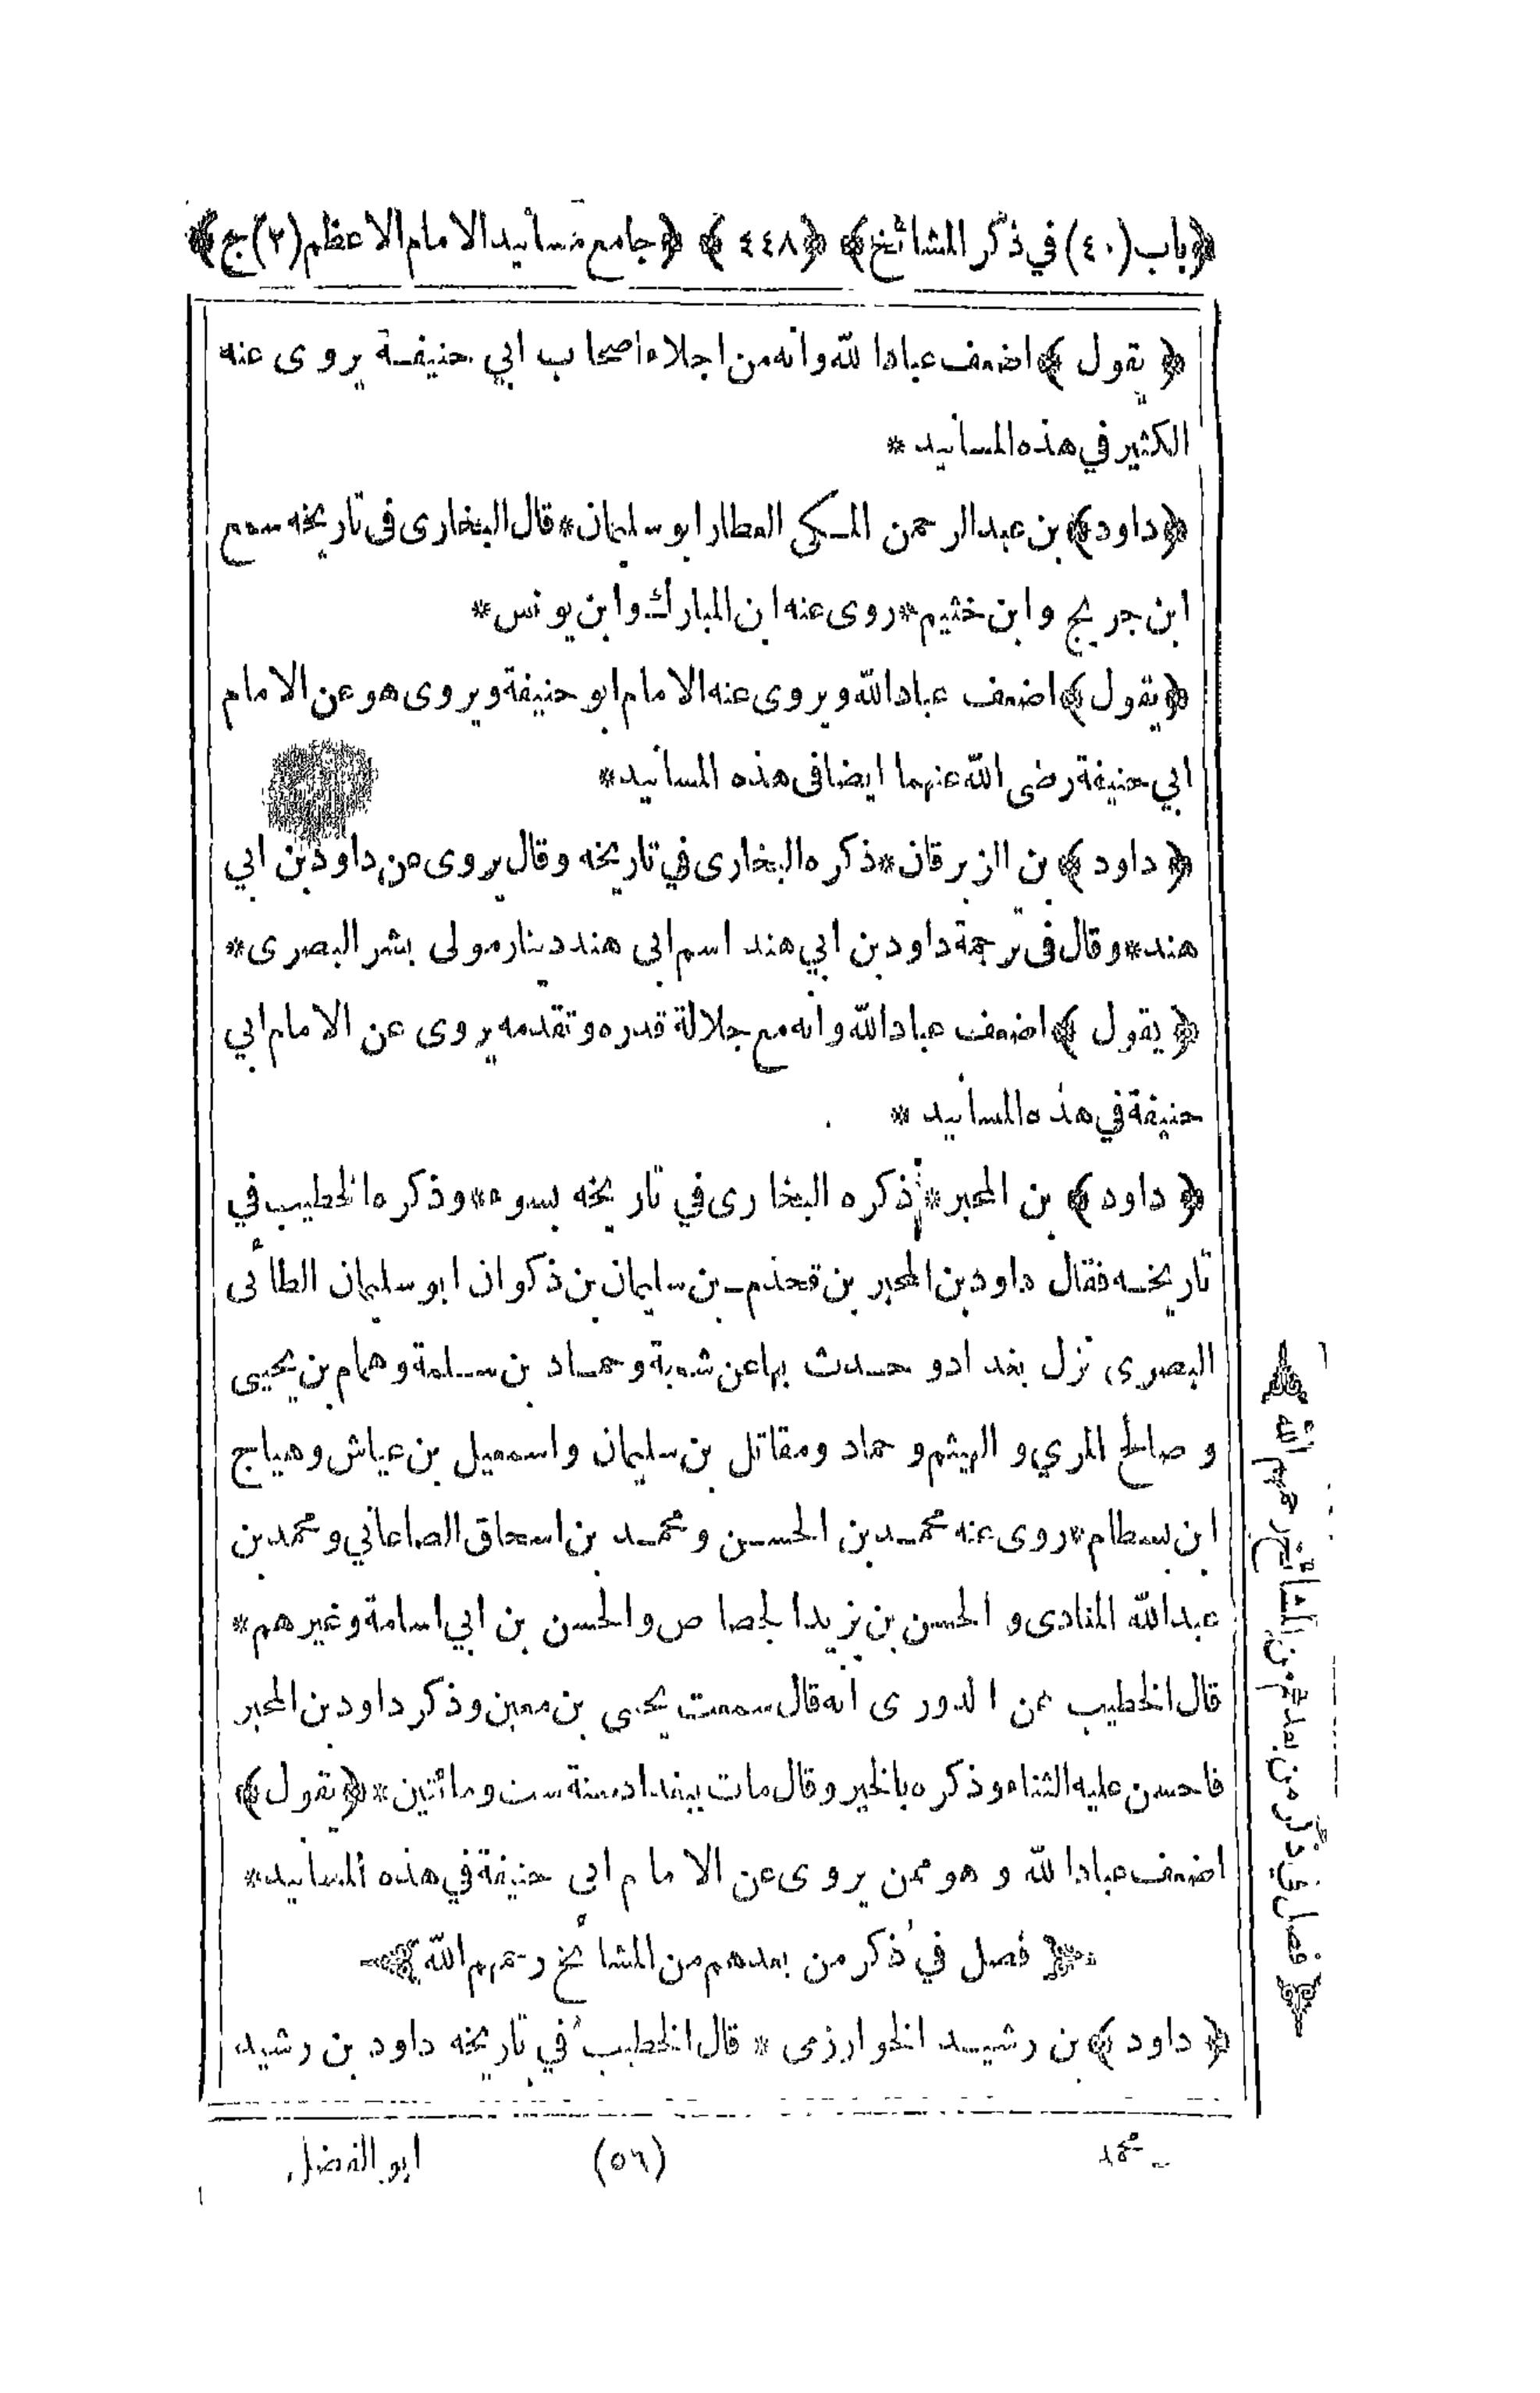 ﴿باب (٤٠) في ذكر المشائخ﴾ ﴿٤٤٨﴾ ﴿جامع مسانيد الامام الاعظم (٢) ج﴾
﴿يقول﴾ اضعف عباد الله وانه من اجلاء اصحاب ابي حنيفة يروى عنه
الكثير في هذه المسانيد *
﴿داود﴾ بن عبد الرحمن المكي العطار ابو سليمان * قال البخارى فى تاريخه سمع
ابن جريج وابن خثيم * روى عنه ابن المبارك وابن يونس *
﴿يقول﴾ اضعف عباد الله ويروى عنه الامام ابو حنيفة ويروى هو عن الامام
ابي حنيفة رضى الله عنهما ايضا فى هذه المسانيد *
﴿داود﴾ بن الزبرقان * ذكره البخارى في تاريخه وقال يروى عن داود بن ابي
هند * وقال فى ترجمة داود بن ابي هند اسم ابى هند دينار مولى بشر البصرى *
﴿يقول﴾ اضعف عباد الله وانه مع جلالة قدره وتقدمه يروى عن الامام ابي
حنيفة في هذه المسانيد *
﴿داود﴾ بن المحبر * ذكره البخارى في تاريخه بسوء * وذكره الخطيب في
تاريخه فقال داود بن المحبر بن قحذم بن سليمان بن ذكوان ابو سليمان الطائى
البصرى نزل بغداد وحدث بها عن شعبة وحماد بن سلمة وهمام بن يحيى
وصالح المري والهيثم وحماد ومقاتل بن سليمان واسمعيل بن عياش وهياج
ابن بسطام * روى عنه محمد بن الحسن ومحمد بن اسحاق الصاغاني ومحمد بن
عبد الله المنادى والحسن بن يزيد الجصاص والحسن بن ابي اسامة وغيرهم *
قال الخطيب عن الدورى انه قال سمعت يحيى بن معين وذكر داود بن المحبر
فاحسن عليه الثناء وذكره بالخير وقال مات ببغداد سنة ست ومائتين * ﴿يقول﴾
اضعف عباد الله وهو ممن يروى عن الامام ابى حنيفة في هذه المسانيد *
فصل في ذكر من بعدهم من المشائخ رحمهم الله
﴿داود﴾ بن رشيد الخوارزمى * قال الخطيب في تاريخه داود بن رشيد
﴿فصل في ذكر من بعدهم من المشائخ رحمهم الله﴾
ابو الفضل (٥٦)